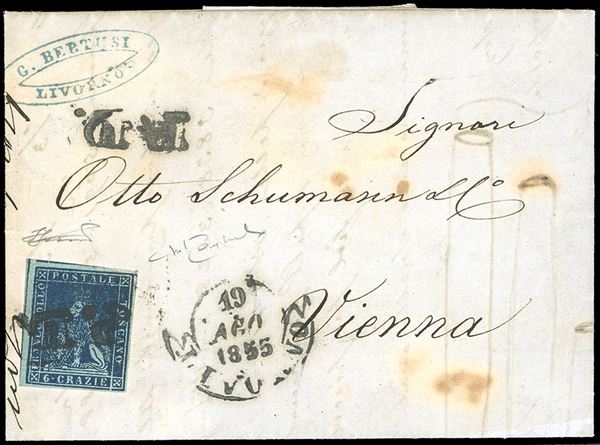 G. BERTUSI
LIVORNO
P.D.
Signori
Otto Schumann & Co
Vienna
FRANCOBOLLO
POSTALE
TOSCANO
6·CRAZIE
P.D.
19
AGO
1855
LIVORNO